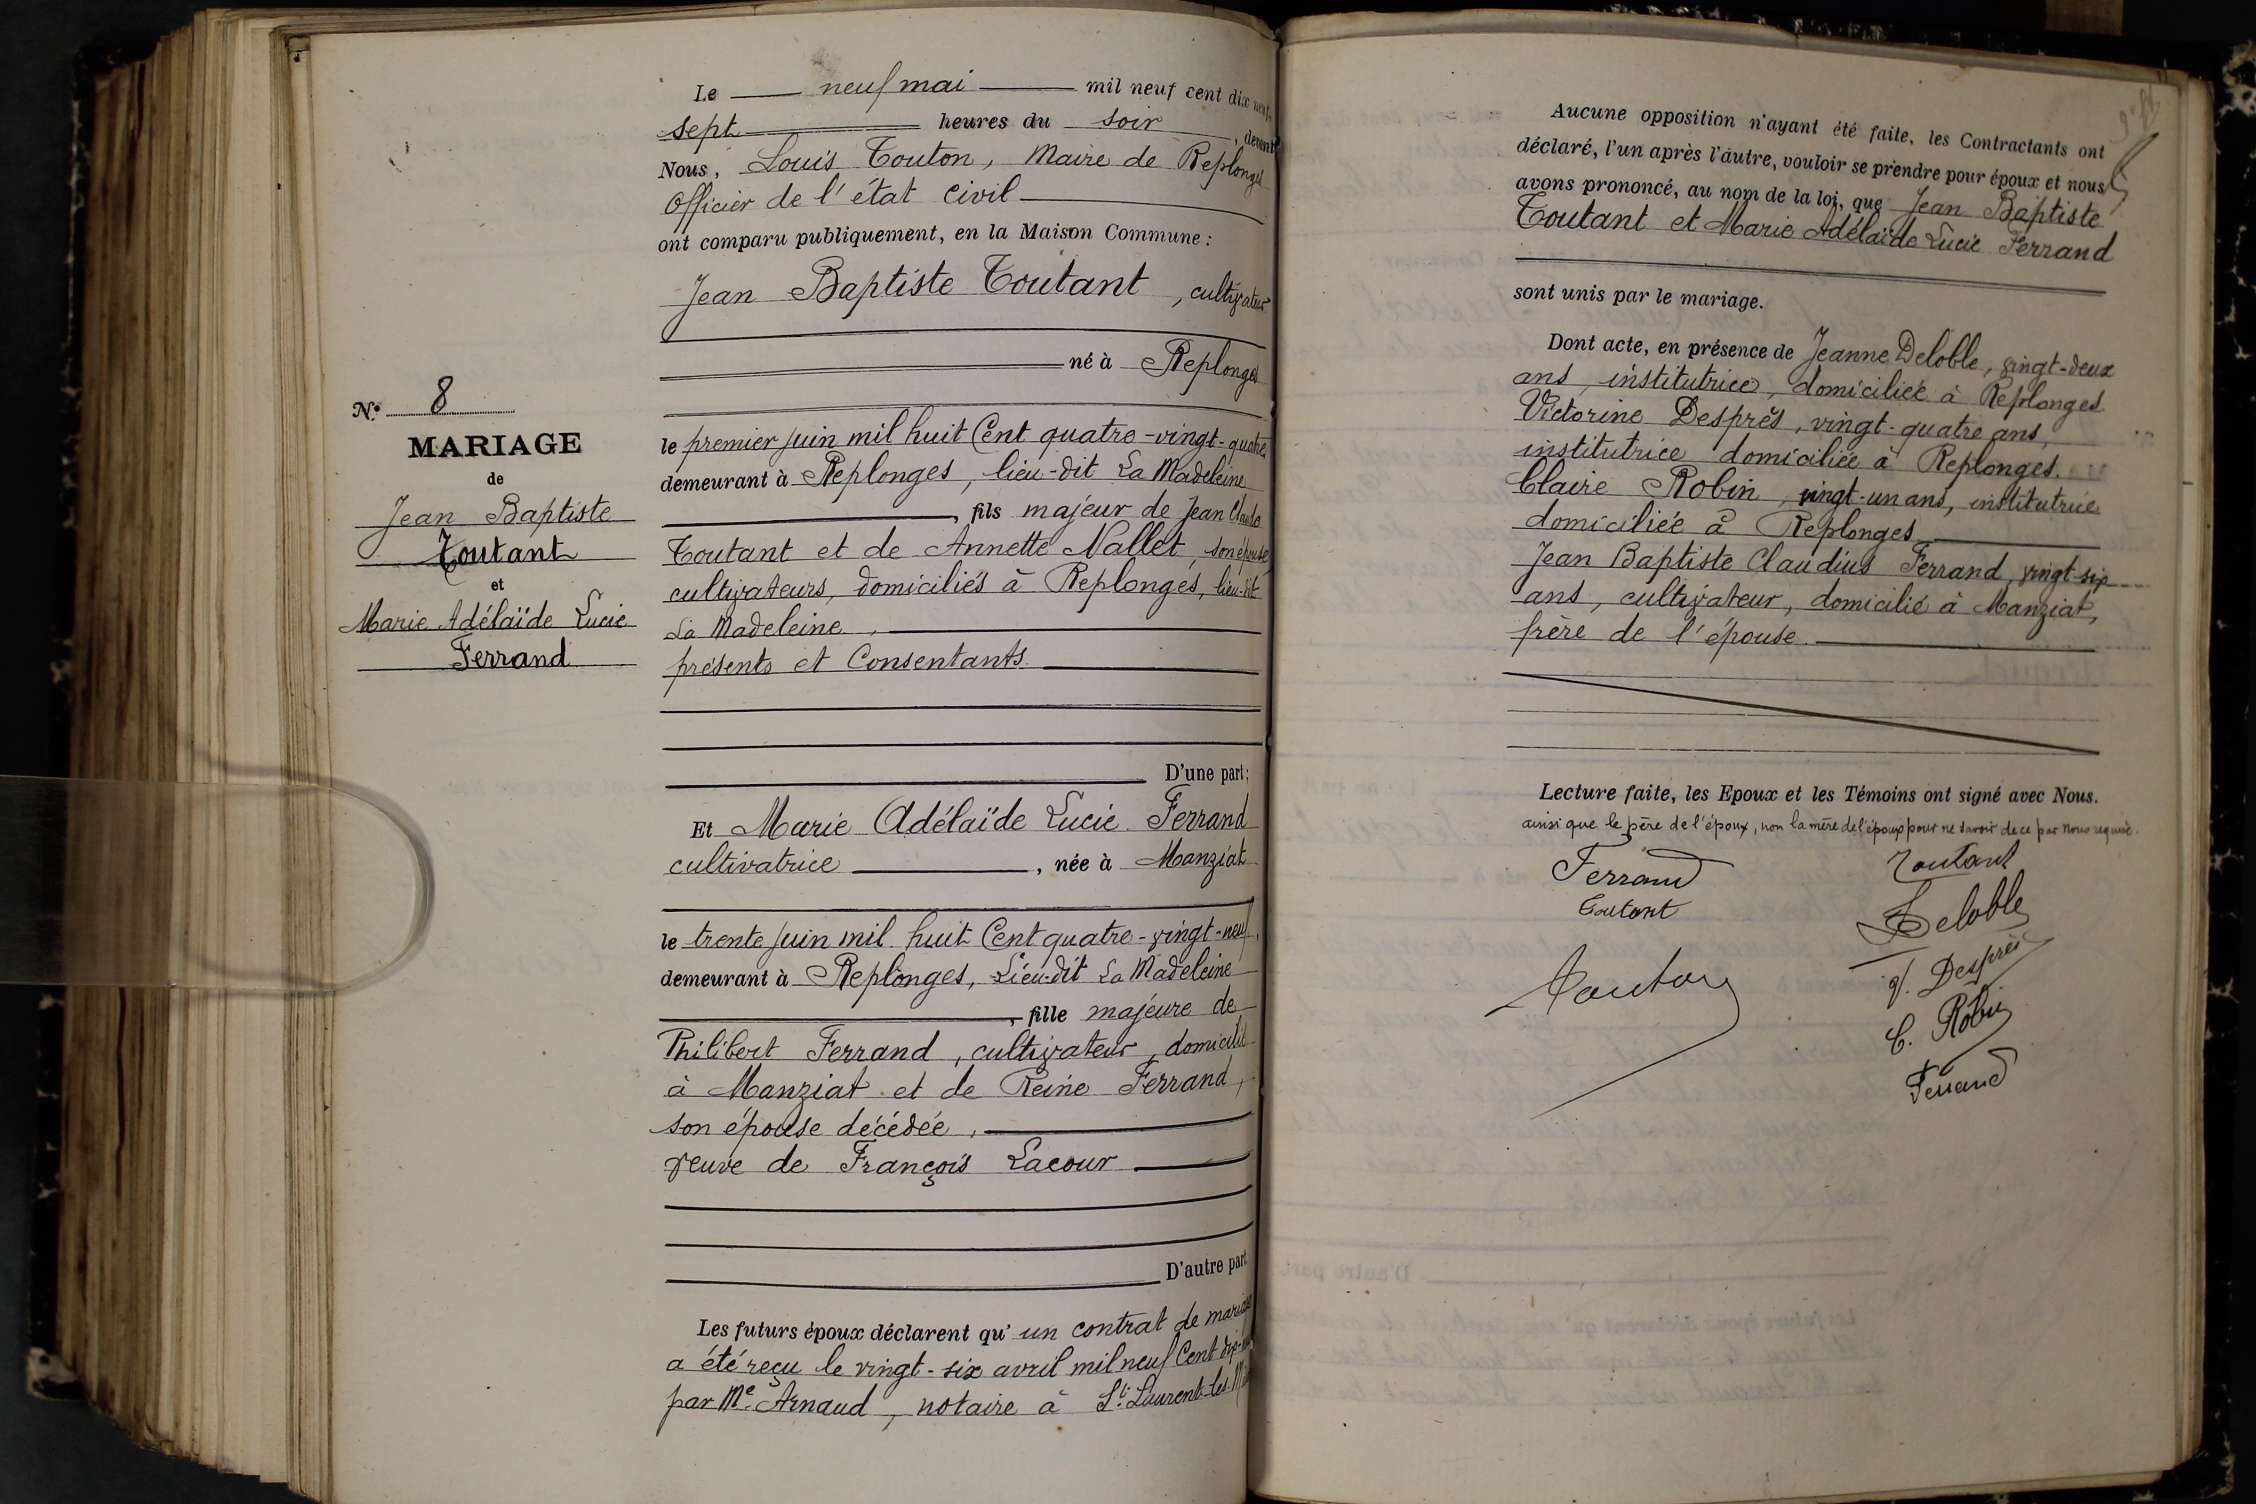 N.º 8
MARIAGE
de
Jean Baptiste
Toutant
et
Marie Adélaïde Lucie
Ferrand
Le neuf mai mil neuf cent dix neuf,
sept heures du soir, devant
Nous, Louis Touton, Maire de Replonges
Officier de l'état civil
ont comparu publiquement, en la Maison Commune :
Jean Baptiste Toutant, cultivateur
né à Replonges
le premier juin mil huit Cent quatre-vingt-quatre
demeurant à Replonges, lieu-dit La Madeleine
, fils majeur de Jean Claude
Toutant et de Annette Nallet, son épouse
cultivateurs, domiciliés à Replonges, lieu-dit
La Madeleine,
présents et Consentants
D'une part ;
Et Marie Adélaïde Lucie Ferrand
cultivatrice, née à Manziat
le trente juin mil huit Cent quatre-vingt-neuf,
demeurant à Replonges, Lieu-dit La Madeleine
, fille majeure de
Philibert Ferrand, cultivateur, domicilié
à Manziat et de Reine Ferrand,
son épouse décédée,
veuve de François Lacour
D'autre part
Les futurs époux déclarent qu'un contrat de mariage
a été reçu le vingt-six avril mil neuf Cent dix-neuf
par Me Arnaud, notaire à St. Laurent-les-
Aucune opposition n'ayant été faite, les Contractants ont
déclaré, l'un après l'autre, vouloir se prendre pour époux et nous
avons prononcé, au nom de la loi, que Jean Baptiste
Toutant et Marie Adélaïde Lucie Ferrand
sont unis par le mariage.
Dont acte, en présence de Jeanne Deloble, vingt-deux
ans, institutrice, domiciliée à Replonges
Victorine Desprès, vingt-quatre ans,
institutrice domiciliée à Replonges.
Claire Robin, vingt-un ans, institutrice
domiciliée à Replonges
Jean Baptiste Claudius Ferrand, vingt-six
ans, cultivateur, domicilié à Manziat,
frère de l'épouse.
Lecture faite, les Epoux et les Témoins ont signé avec Nous.
ainsi que le père de l'époux, non la mère de l'époux pour ne savoir de ce par Nous requise.
Ferrand
Toutant
Toutant
Deloble
Touton
V. Desprès
C. Robin
Ferrand